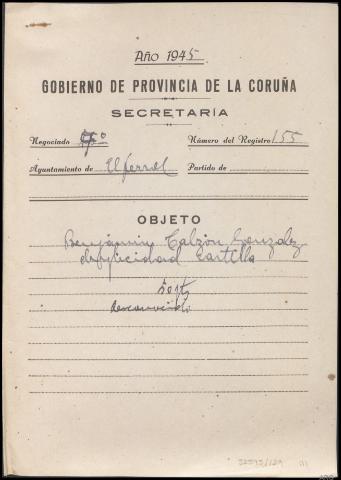 Año 1945
GOBIERNO DE PROVINCIA DE LA CORUÑA
SECRETARÍA
Negociado 7º Número del Registro 155
Ayuntamiento de El Ferrol Partido de
OBJETO
Benjamin Calzón Gonzalez
duplicidad Cartilla
desconocido